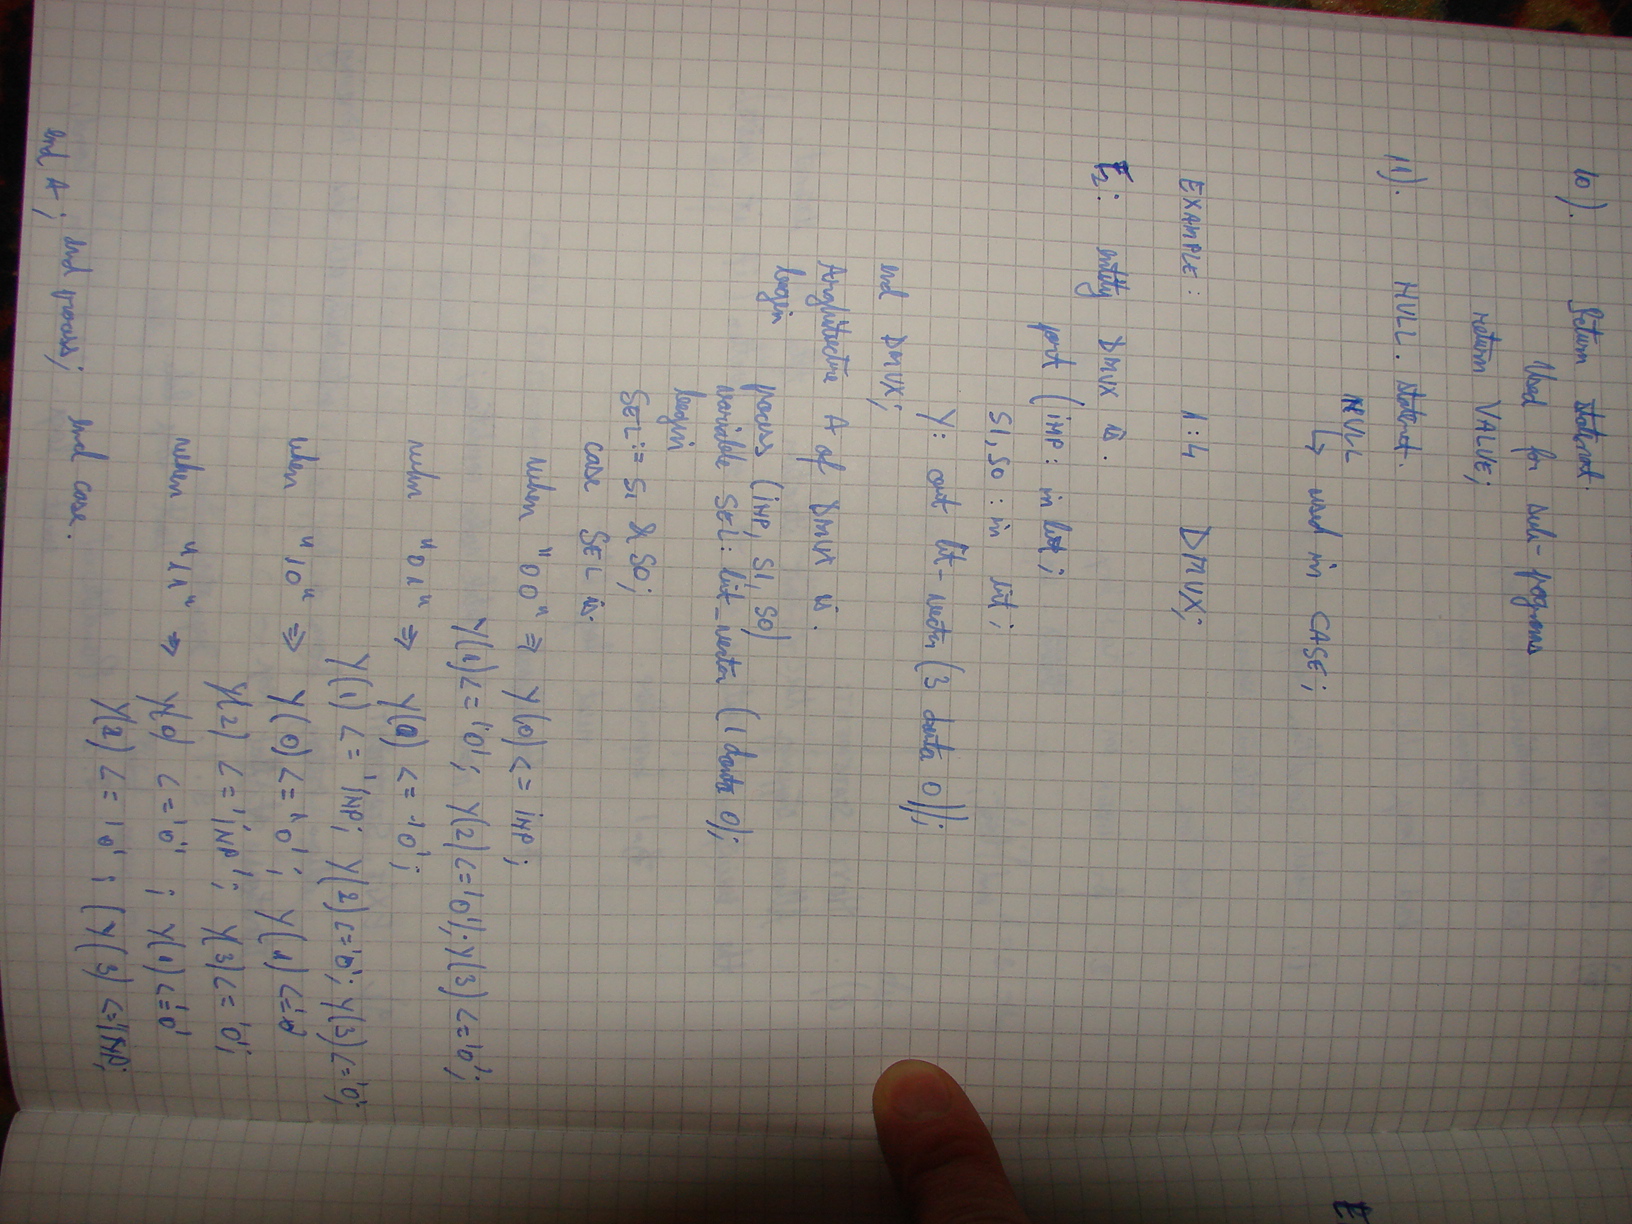 10). Return statemnt.
Used for sub-programs
return VALUE;
11). NULL. statemt.
NULL
↳ used in CASE;
EXAMPLE: 1:4 DMUX;
E2: entity DMUX is.
port (iNP: in bit;
S1, S0: in bit;
Y: out bit-vector (3 downto 0));
end DMUX;
Arghitecture A of DMUX is.
begin
process (iNP, S1, S0)
variable SEL: bit_vector (1 downto 0);
begin
SEL:= S1 & S0;
case SEL is.
when "00" => Y(0) <= iNP;
Y(1) <= '0'; Y(2) <= '0'; Y(3) <= '0';
when "01" => Y(0) <= '0';
Y(1) <= 'iNP; Y(2) <= '0'; Y(3) <= '0';
when "10" => Y(0) <= '0'; Y(1) <= '0'
Y(2) <= 'iNP'; Y(3) <= '0';
when "11" => Y(0) <= '0'; Y(1) <= '0'
Y(2) <= '0'; (Y(3) <= 'iNP;
end case.
end A; end process;
E